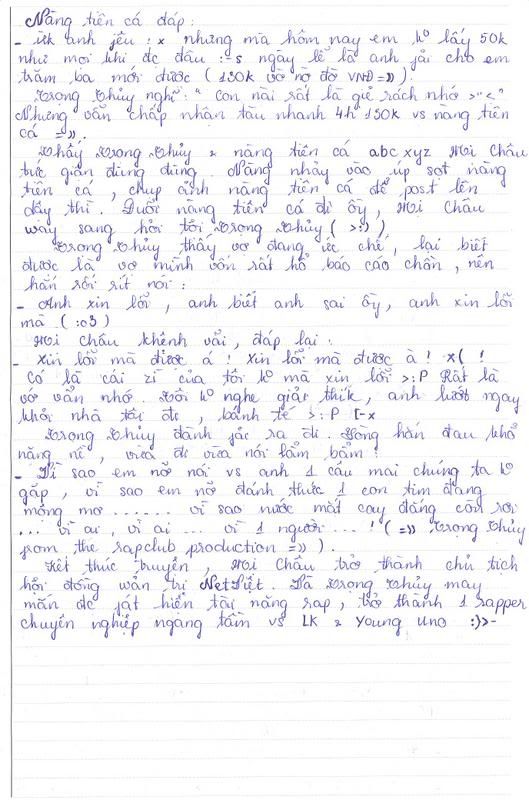 Nàng tiên cá đáp:
- ừk anh jêu :x nhưng mà hôm nay em k° lấy 50k
như mọi khi đc đâu :-s ngày lễ là anh jải cho em
trăm ba mới được (130k vờ nờ đờ VNĐ =)))
Trọng Thủy nghĩ: " con nài rất là giẻ rách nhớ >"<"
Nhưng vẫn chấp nhận tàu nhanh 4h 130k vs nàng tiên
cá =)).
Thấy Trọng Thủy & nàng tiên cá abc xyz Mị Châu
tức giận đùng đùng. Nàng nhảy vào úp sọt nàng
tiên cá, chụp ảnh nàng tiên cá để post lên
dây thì. Đuổi nàng tiên cá đi ồy, Mị Châu
way sang hỏi tội Trọng Thủy ( >:) ).
Trọng Thủy thấy vợ đang ức chế, lại biết
được là vợ mình vốn rất hổ báo cáo chồn, nên
hắn rối rít nói:
- Anh xin lỗi, anh biết anh sai ồy, anh xin lỗi
mà ( :o3 )
Mị Châu khênh vãi, đáp lại:
- Xin lỗi mà được á! Xin lỗi mà được à! x( !
Có là cái zì của tôi k° mà xin lỗi >:P Rất là
vớ vẩn nhớ. Tôi k° nghe giải thík, anh lướt ngay
khỏi nhà tôi đi, bánh tẻ >:P [-x
Trọng Thủy đành jải ra đi. Lòng hắn đau khổ
nặng nề, vừa đi vừa nói lẩm bẩm:
- Vì sao em nỡ nói vs anh 1 câu mai chúng ta k°
gặp, vì sao em nỡ đánh thức 1 con tim đang
mộng mơ ....... vì sao nước mắt cay đắng còn rơi
... vì ai, vì ai ... vì 1 người ... ! ( =)) Trọng Thủy
from the rapclub production =)) ).
Kết thúc truyện, Mị Châu trở thành chủ tịch
hội đồng wản trị NetViệt. Và Trọng Thủy may
mắn đc ját hiện tài năng rap, trở thành 1 rapper
chuyên nghiệp ngang tầm vs LK & Young Uno :)>-